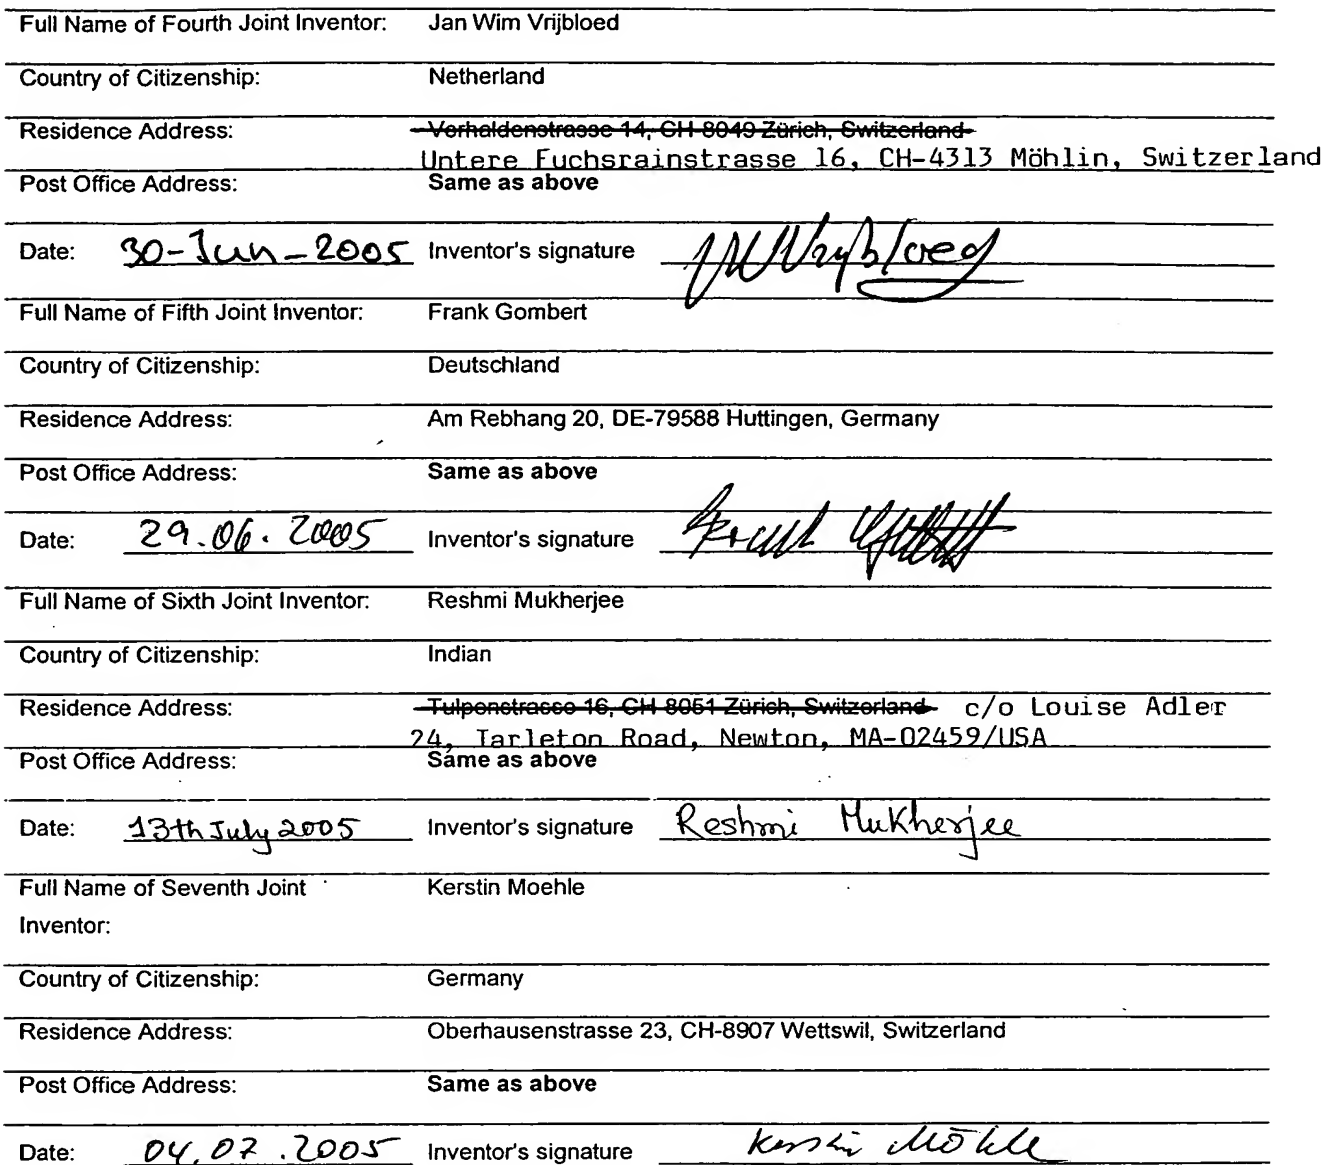 Full Name of Fourth Joint Inventor: Jan Wim Vrijbloed
Country of Citizenship: Netherland
Residence Address: Vorhaldenstrasse 14, CH-8049 Zürich, Switzerland
Untere Fuchsrainstrasse 16, CH-4313 Möhlin, Switzerland
Post Office Address: Same as above
Date: 30-Jun-2005 Inventor's signature JW Vrijbloed
Full Name of Fifth Joint Inventor: Frank Gombert
Country of Citizenship: Deutschland
Residence Address: Am Rebhang 20, DE-79588 Huttingen, Germany
Post Office Address: Same as above
Date: 29.06.2005 Inventor's signature Frank
Full Name of Sixth Joint Inventor: Reshmi Mukherjee
Country of Citizenship: Indian
Residence Address: Tulpenstrasse 16, CH-8051 Zürich, Switzerland c/o Louise Adler
24, Tarleton Road, Newton, MA-02459/USA
Post Office Address: Same as above
Date: 13th July 2005 Inventor's signature Reshmi Mukherjee
Full Name of Seventh Joint Kerstin Moehle
Inventor:
Country of Citizenship: Germany
Residence Address: Oberhausenstrasse 23, CH-8907 Wettswil, Switzerland
Post Office Address: Same as above
Date: 04.07.2005 Inventor's signature Kerstin Möhle